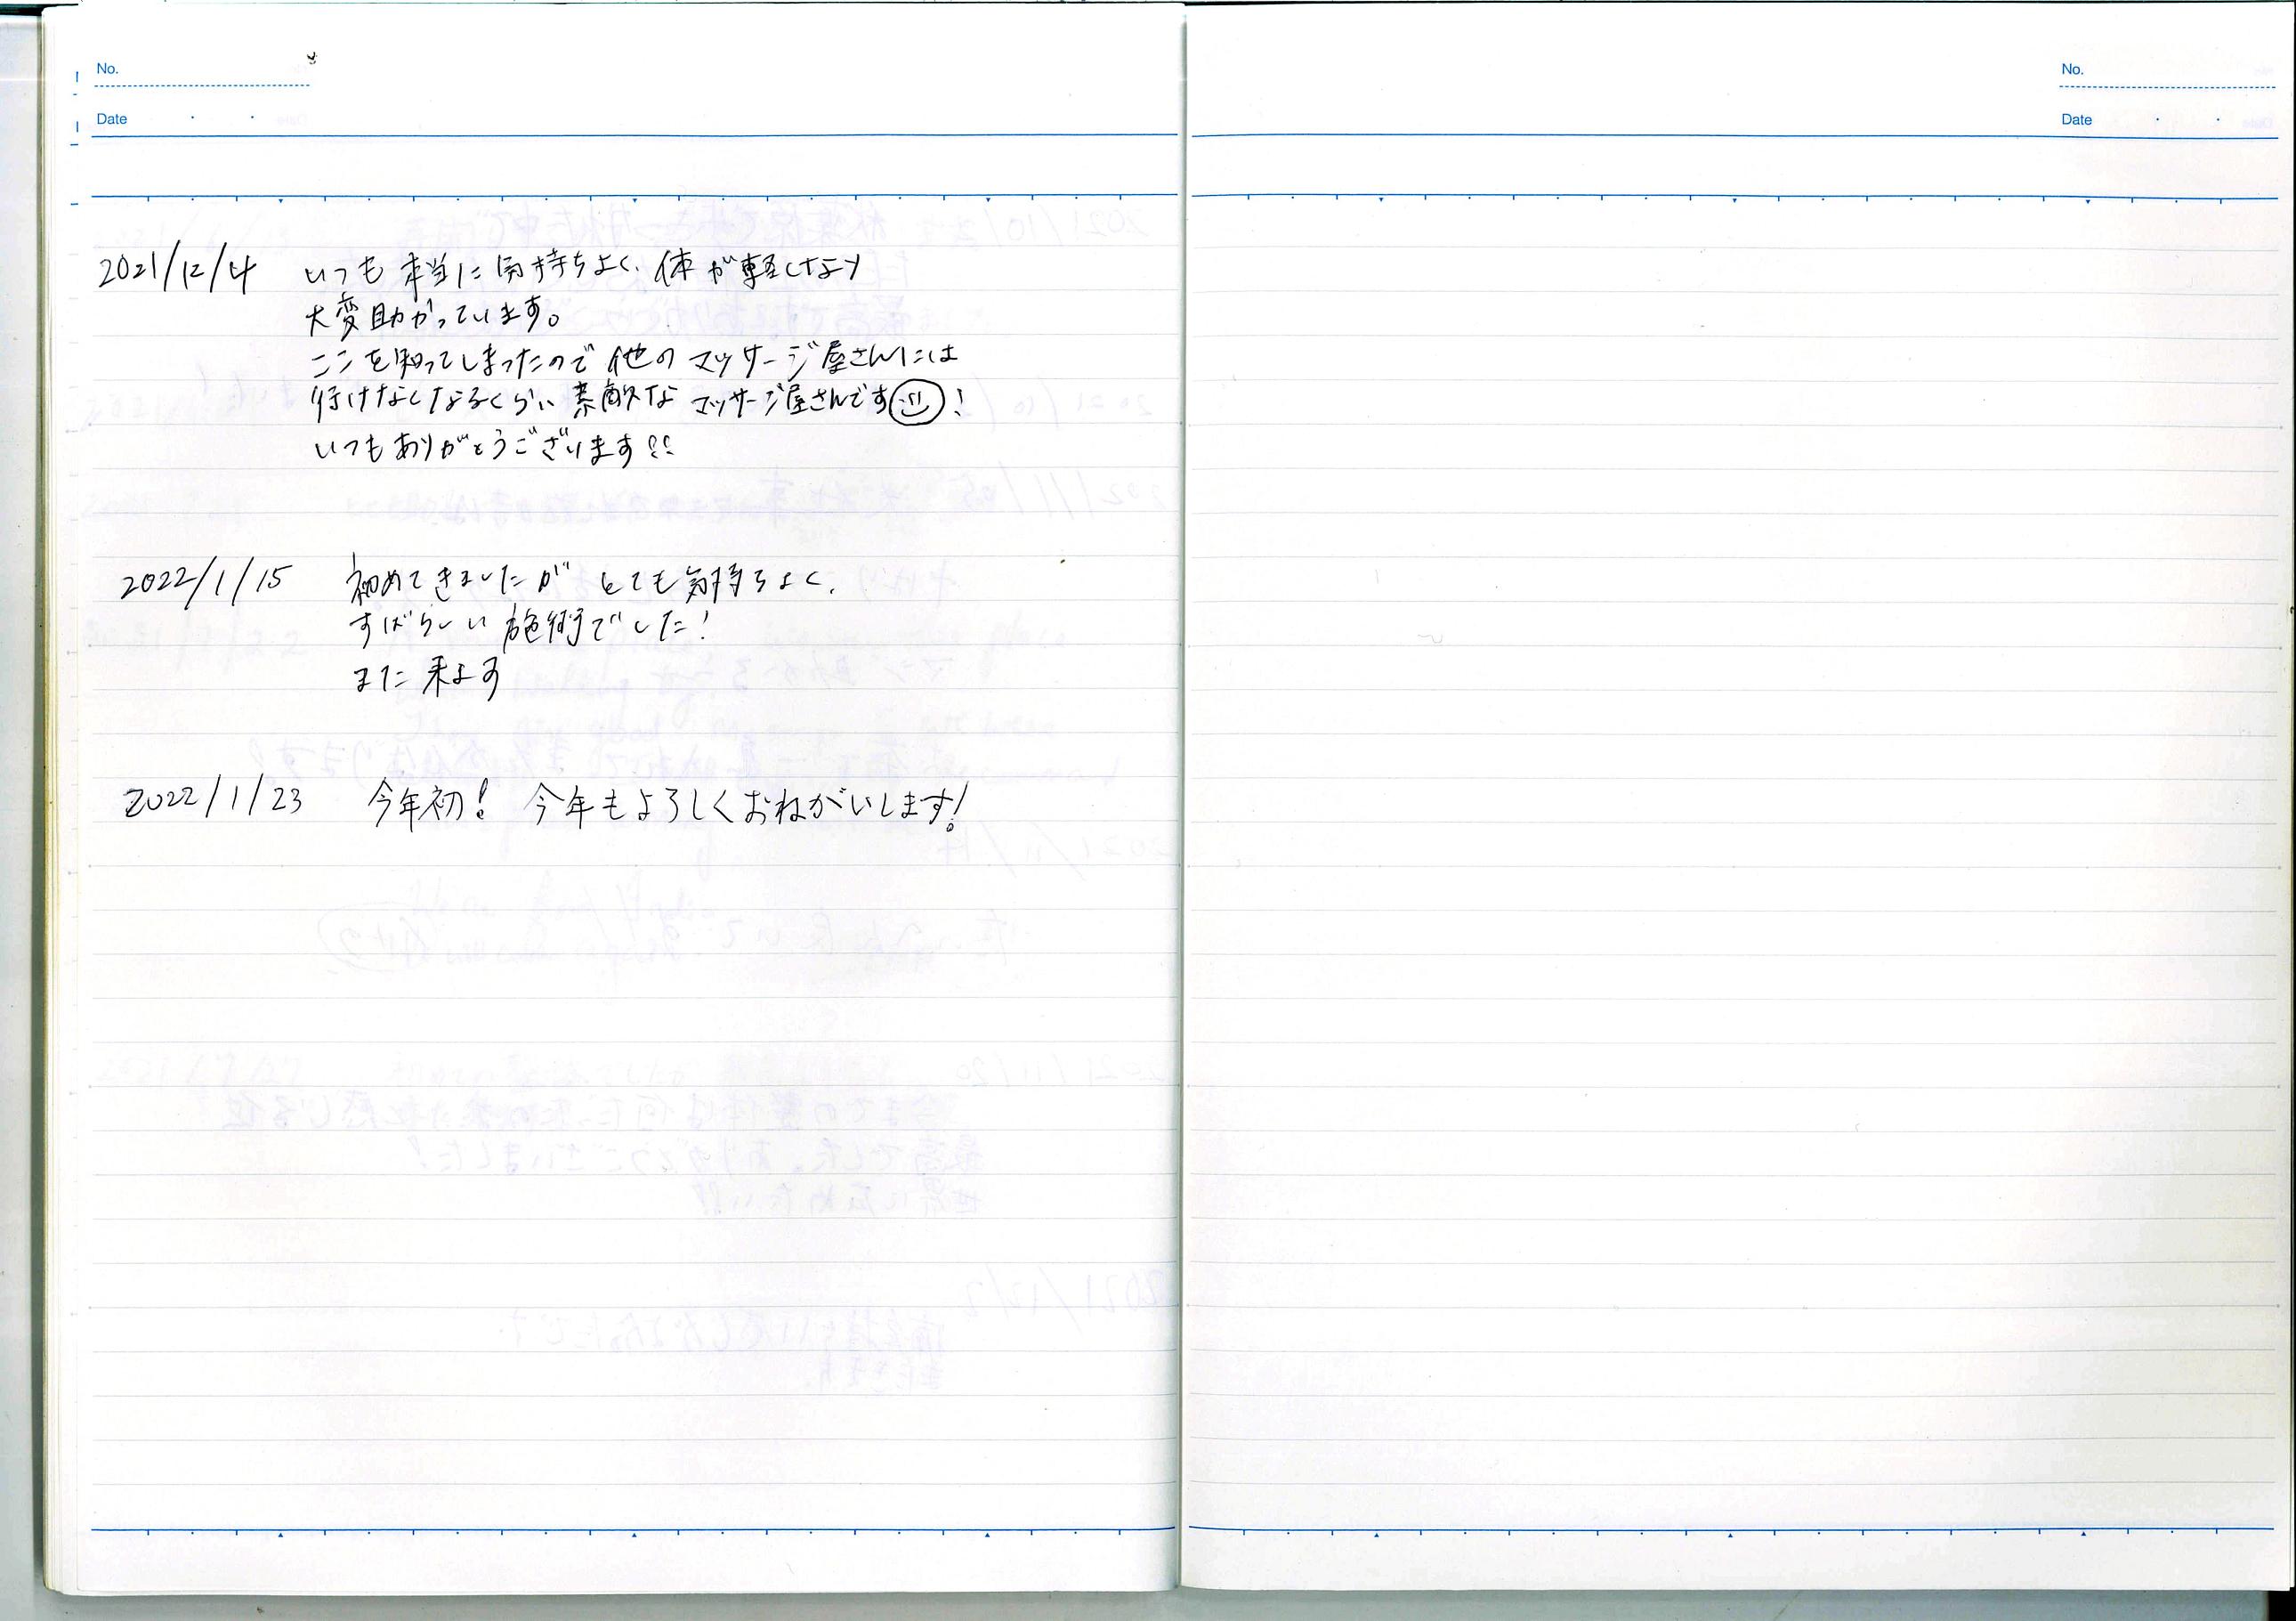 No.
Date
2021/12/4 いつも本当に気持ちよく、体が軽くなり
大変助かっています。
ここを知ってしまったので他のマッサージ屋さんには
行けなくなるくらい素敵なマッサージ屋さんです!
いつもありがとうございます!!
2022/1/15 初めてきましたがとても気持ちよく、
すばらしい施術でした!
また来ます
2022/1/23 今年初! 今年もよろしくおねがいします!
No.
Date